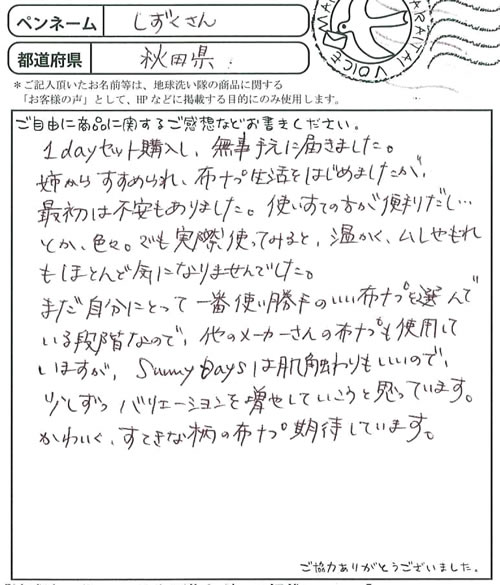 ペンネーム しずくさん
都道府県 秋田県
＊ご記入頂いたお名前等は、地球洗い隊の商品に関する
「お客様の声」として、HPなどに掲載する目的にのみ使用します。
ご自由に商品に関するご感想などお書きください。
1dayセット購入し、無事手元に届きました。
姉からすすめられ、布ナプ生活をはじめましたが、
最初は不安もありました。使いすての方が便利だし…
とか、色々。でも実際使ってみると、温かく、ムレやもれ
もほとんど気になりませんでした。
まだ自分にとって一番使い勝手のいい布ナプを選んで
いる段階なので、他のメーカーさんの布ナプも使用して
いますが、Sunny Daysは肌触わりもいいので、
少しずつバリエーションを増やしていこうと思っています。
かわいく、すてきな柄の布ナプ期待しています。
ご協力ありがとうございました。
VOICE